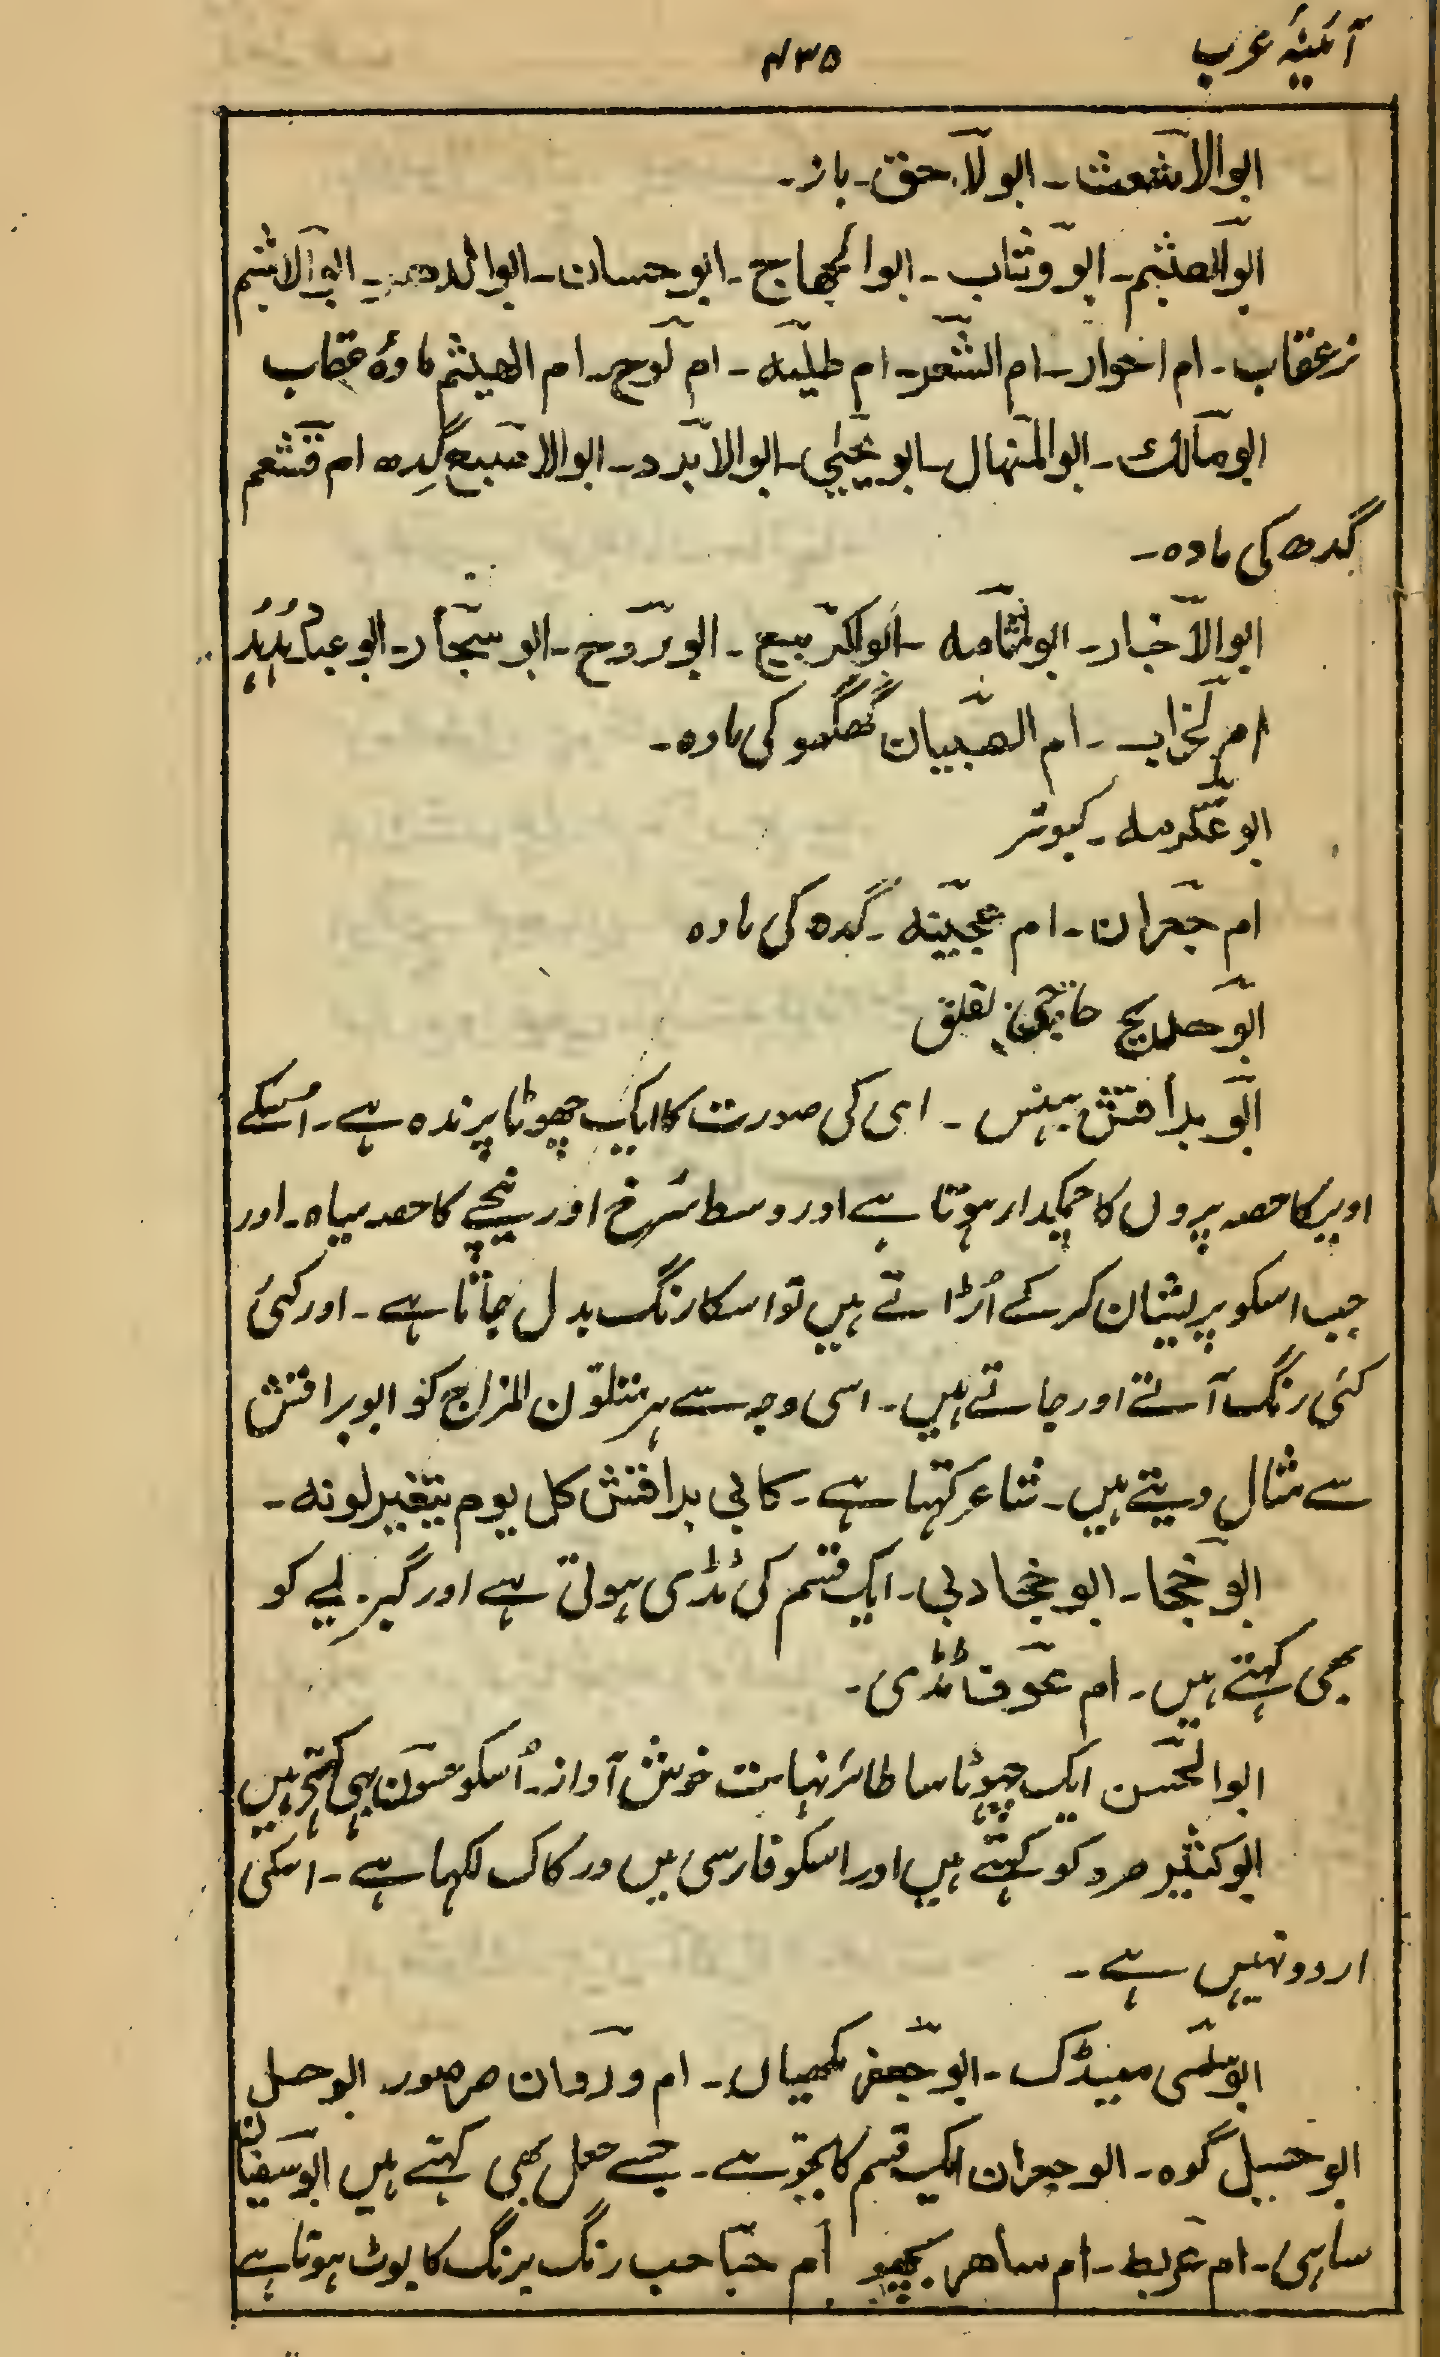 آئینۂ عرب
۴۳۵
ابوالاشعث۔ ابو لاحق۔ باز۔
ابوالھیثم۔ ابو وثاب۔ ابوالحجاج۔ ابو حسان۔ ابوالدھر۔ ابوالاشیم
نر عقاب۔ ام اخوار۔ ام الشعر۔ ام طلبہ۔ ام لوح۔ ام الھیثم مادۂ عقاب
ابو مالک۔ ابو المنہال۔ ابو یحییٰ۔ ابوالابرد۔ ابوالاصبع گِدھ ام قشعم
گدھ کی مادہ۔
ابوالاخبار۔ ابو ثمامہ۔ ابو الربیع۔ ابو روح۔ ابو سجار۔ ابو عباد ہُدہُد
ام الخراب۔ ام الصبیان گھگھو کی مادہ۔
ابو عکرمہ۔ کبوتر
ام جعران۔ ام عجیبہ۔ گدھ کی مادہ
ابو حدیج لقلق
ابو براقش بہنس۔ اسی کی صورت کا ایک چھوٹا پرندہ ہے۔ اُسکے
اوپر کا حصہ پروں کا چمکیدار ہوتا ہے اور وسط سُرخ اور نیچے کا حصہ سیاہ۔ اور
جب اسکو پریشان کر کے اُڑاتے ہیں تو اسکا رنگ بدل جاتا ہے۔ اور کئی
کئی رنگ آتے اور جاتے ہیں۔ اسی وجہ سے ہر متلون المزاج کو ابو براقش
سے مثال دیتے ہیں۔ شاعر کہتا ہے۔ کابی براقش کل یوم یتغیر لونہ۔
ابو جخا۔ ابو جخادبی۔ ایک قسم کی ٹڈی ہوتی ہے اور گبریلے کو
بھی کہتے ہیں۔ ام عوف ٹڈی۔
ابوالحسن ایک چھوٹا سا طائر نہایت خوش آواز۔ اُسکو حسون بھی کہتے ہیں
ابو کثیر صرد کو کہتے ہیں اور اسکو فارسی میں ورکاک لکہا ہے۔ اسکی
اردو نہیں ہے۔
ابو سلمی مینڈک۔ ابو جعفر مکھیاں۔ ام وردان صرصور ابو حسل
ابو حسیل گوہ۔ ابو جعران ایک قسم کا بجو ہے۔ جسے جعل بھی کہتے ہیں ابو سفیان
ساہی۔ ام عریط۔ ام ساھر بچھو ام حباحب رنگ برنگ کا بوٹ ہوتا ہے